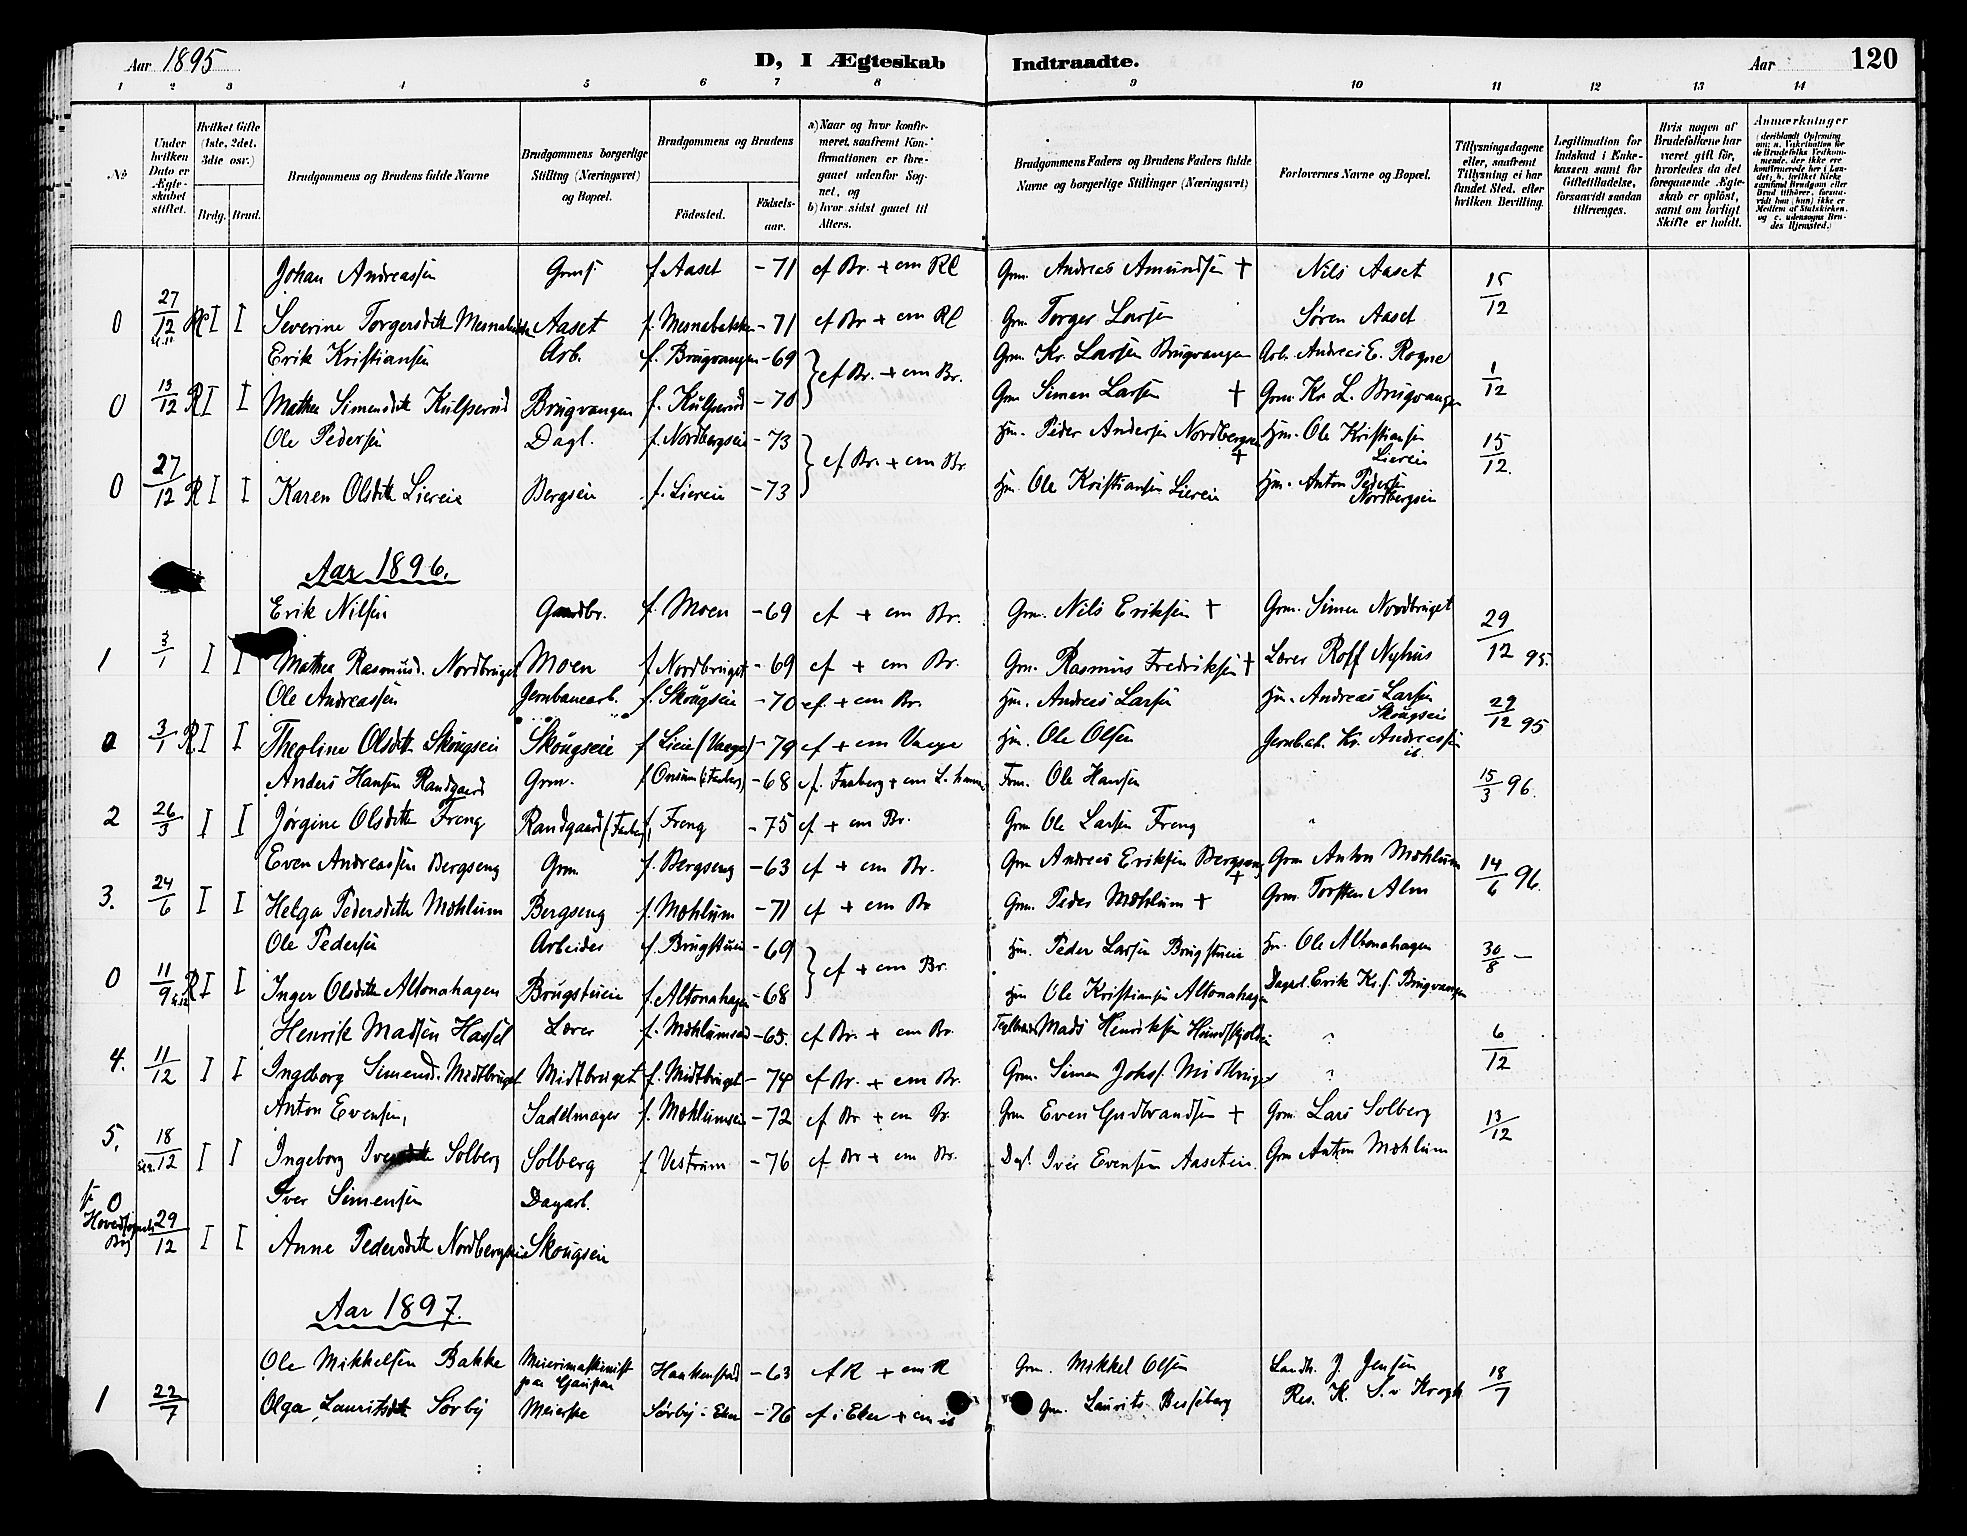 Aar 1895
D, I Ægteskab Indtraadte.
Aar 120
1 2 3 4 5 6 7 8 9 10 11 12 13 14
No
Under hvilken Dato er Ægteskabet stiftet.
Hvilket Gifte (1ste, 2det, 3die osv.)
Brdg. Brud.
Brudgommens og Brudens fulde Navne
Brudgommens borgerlige Stilling (Næringsvei) og Bopæl.
Brudgommens og Brudens
Fødested. Fødselsaar.
a) Naar og hvor konfirmeret, saafremt Konfirmationen er foregaaet udenfor Sognet, og
b) hvor sidst gaaet til Alters.
Brudgommens Faders og Brudens Faders fulde Navne og borgerlige Stillinger (Næringsvei)
Forlovernes Navne og Bopæl.
Tillysningsdagene eller, saafremt Tillysning ei har fundet Sted, efter hvilken Bevilling.
Legitimation for Indskud i Enkekassen samt for Giftetilladelse, forsaavidt saadan tiltrænges.
Hvis nogen af Brudefolkene har været gift før, hvorledes da det foregaaende Ægteskab er opløst, samt om lovligt Skifte er holdt.
Anmærkninger
Johan Andreassen Grmf. f Aaset -71 cf Br. + cm Rl Grm. Andreas Amundsen + Nils Aaset 15/12
0 27/12 I I Severine Torgersdtr Aaset f. Mesnabakken -71 cf Br + cm Rl Grm. Torger Larsen Søren Aaset
Erik Kristiansen Arb. f. Brugvangen -69 cf Br. + cm Br. Grm. Kr. Larsen Brugvangen Arb. Andreas E. Rogne 1/12
0 13/12 R I I Mathea Simensdtr Kulperud Brugvangen f. Kulperud -70 Grm Simen Larsen + Grm. Kr. L. Brugvangen
Ole Pedersen Dagl. f. Nordbergseie -73 cf Br. + cm Br Hm. Peder Andersen Nordbergseie + Hm. Ole Kristiansen Liereie 15/12.
0 27/12 R I I Karen Olsdtr Liereie Bergseie f. Liereie -73 Hm. Ole Kristiansen Liereie Hm. Anton Pedersen Nordbergseie
Aar 1896.
Erik Nilsen Gaardbr. f. Moen -69 cf + cm Br. Grm. Nils Eriksen + Grm. Simen Nordbruget 29/12 95.
1 3/1 I I Mathea Rasmusd. Nordbruget Moen f. Nordbruget -69 cf + cm Br. Grm. Rasmus Fredriksen + Lærer Roff Nyhus
Ole Andreassen Jernbanearb. f. Skougseie -70 cf. + cm Br. Hm. Andreas Larsen Hm. Andreas Larsen Skougseie 29/12 95
0 3/1 R I I Theoline Olsdtr Skougseie Skougseie f Lieie (Vaage) -79 cf + cm Vaage Hm. Ole Olsen Jernb.arb. Kr. Andreassen ib.
Anders Hansen Randgaard Grm. -68 cf. Faaberg + cm L.hamm Frm. Ole Hansen " 15/3 96.
2 26/3 I I Jørgine Olsdtr Freng Randgaard f. Freng -75 cf + cm Br. Grm Ole Larsen Freng "
Even Andreassen Bergseng Grm. f. Bergseng -63 cf + cm Br. Grm Andreas Eriksen Bergseng + Grm Anton Mæhlum 14/6 96.
3. 24/6 I I Helga Pedersdtr Mæhlum Bergseng f. Mæhlum -71 cf + cm Br Grm. Peder Mæhlum + Grm. Torsten Alm
Ole Pedersen Arbeider f. Brugstueie -69 cf + cm Br. Hm. Peder Larsen Brugstueie Hm. Ole Altonahagen 30/8 —
0 11/9 R I I Inger Olsdtr Altonahagen Brugstueie f. Altonahagen -68 Hm Ole Kristiansen Altonahagen Dagarb. Erik Kr.s. Brugvangen
Henrik Madsen Hassel Lærer f. Mæhlumseie -65. cf Br. + cm Br. Mads Henriksen " 6/12
4. 11/12 I I Ingeborg Simensd. Midtbruget Midtbruget f. Midtbruget -74 cf Br. + cm Br. Grm. Simen Johs. Midtbruget "
Anton Evensen, Sadelmager f. Mæhlumseie -72 cf Br + cm Br Grm Even Gudbrandsen + Grm. Lars Solberg 13/12
5. 18/12 I I Ingeborg Iversdtr Solberg Solberg f Vestrum -76 cf Br + cm Br. Dagl. Iver Evensen Aaseteie. Grm Anton Mæhlum
0 Iver Simensen Dagarb.
29/12 I I Anne Pedersdtr Nordbergseie Skougseie
Aar 1897.
Ole Mikkelsen Bakke Meierimaskinist Haakenstad -63 cf R + cm R Grm. Mikkel Olsen Landh. J. Jensen 18/7
1 22/7 Olga Lauritsdtr Sørby Meierske Sørby i Eker -76 cf i Eker + cm ib Grm. Laurits Besseberg Res. K. S. v Krogh